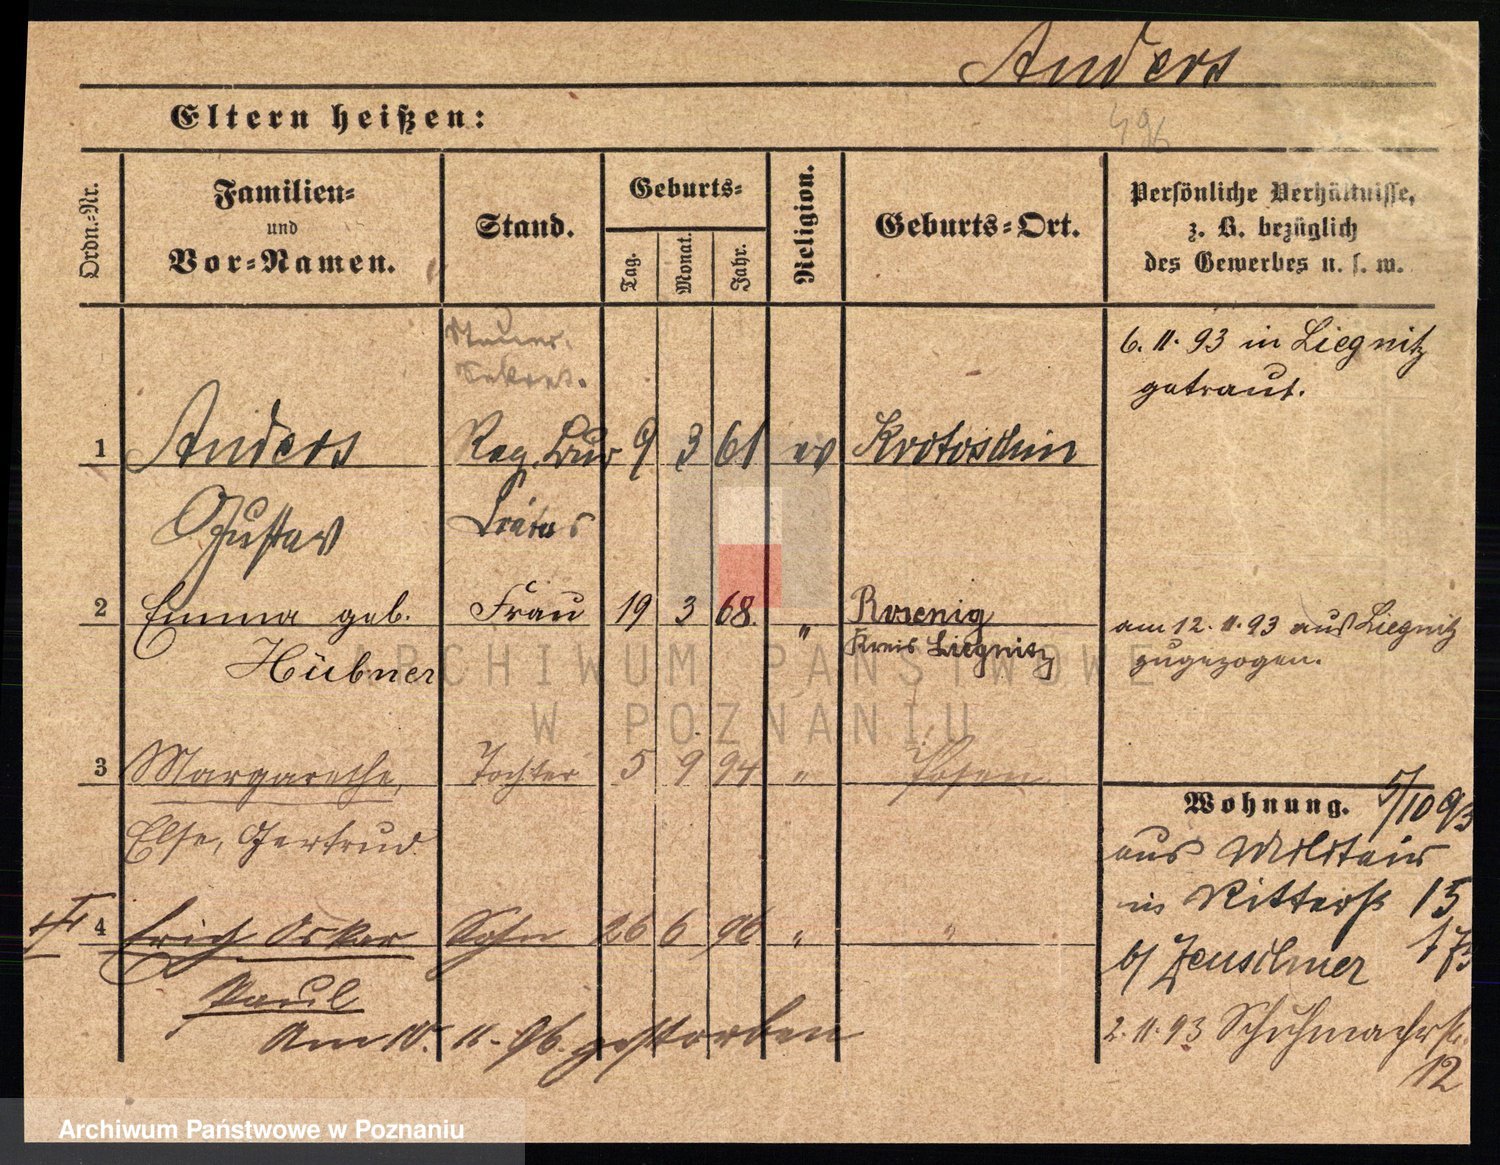 Anders
Eltern heißen:
496
Ordn.-Nr.
Familien-
und
Vor-Namen.
Stand.
Geburts-
Tag.
Monat.
Jahr.
Religion.
Geburts-Ort.
Persönliche Verhältnisse,
z. B. bezüglich
des Gewerbes u. s. w.
6. 11. 93 in Liegnitz
getraut.
1 Anders Reg. Bur 9 3 61 ev Krotoschin
Gustav
2 Emma geb. Frau 19 3 68. " Rosenig
Hübner Kreis Liegnitz
am 12. 11. 93 aus Liegnitz
zugezogen.
3 Margarethe, Tochter 5 9 94 " Posen
Else, Gertrud
Wohnung. 5/10 93
aus Militair
in Ritterst 15
b/
2. 11. 93 Schuhmacherstr.
12
4 Erich Oskar Sohn 26 6 96 " "
Paul
Am 10. 11. 96. gestorben
ARCHIWUM PAŃSTWOWE
W POZNANIU
Archiwum Państwowe w Poznaniu